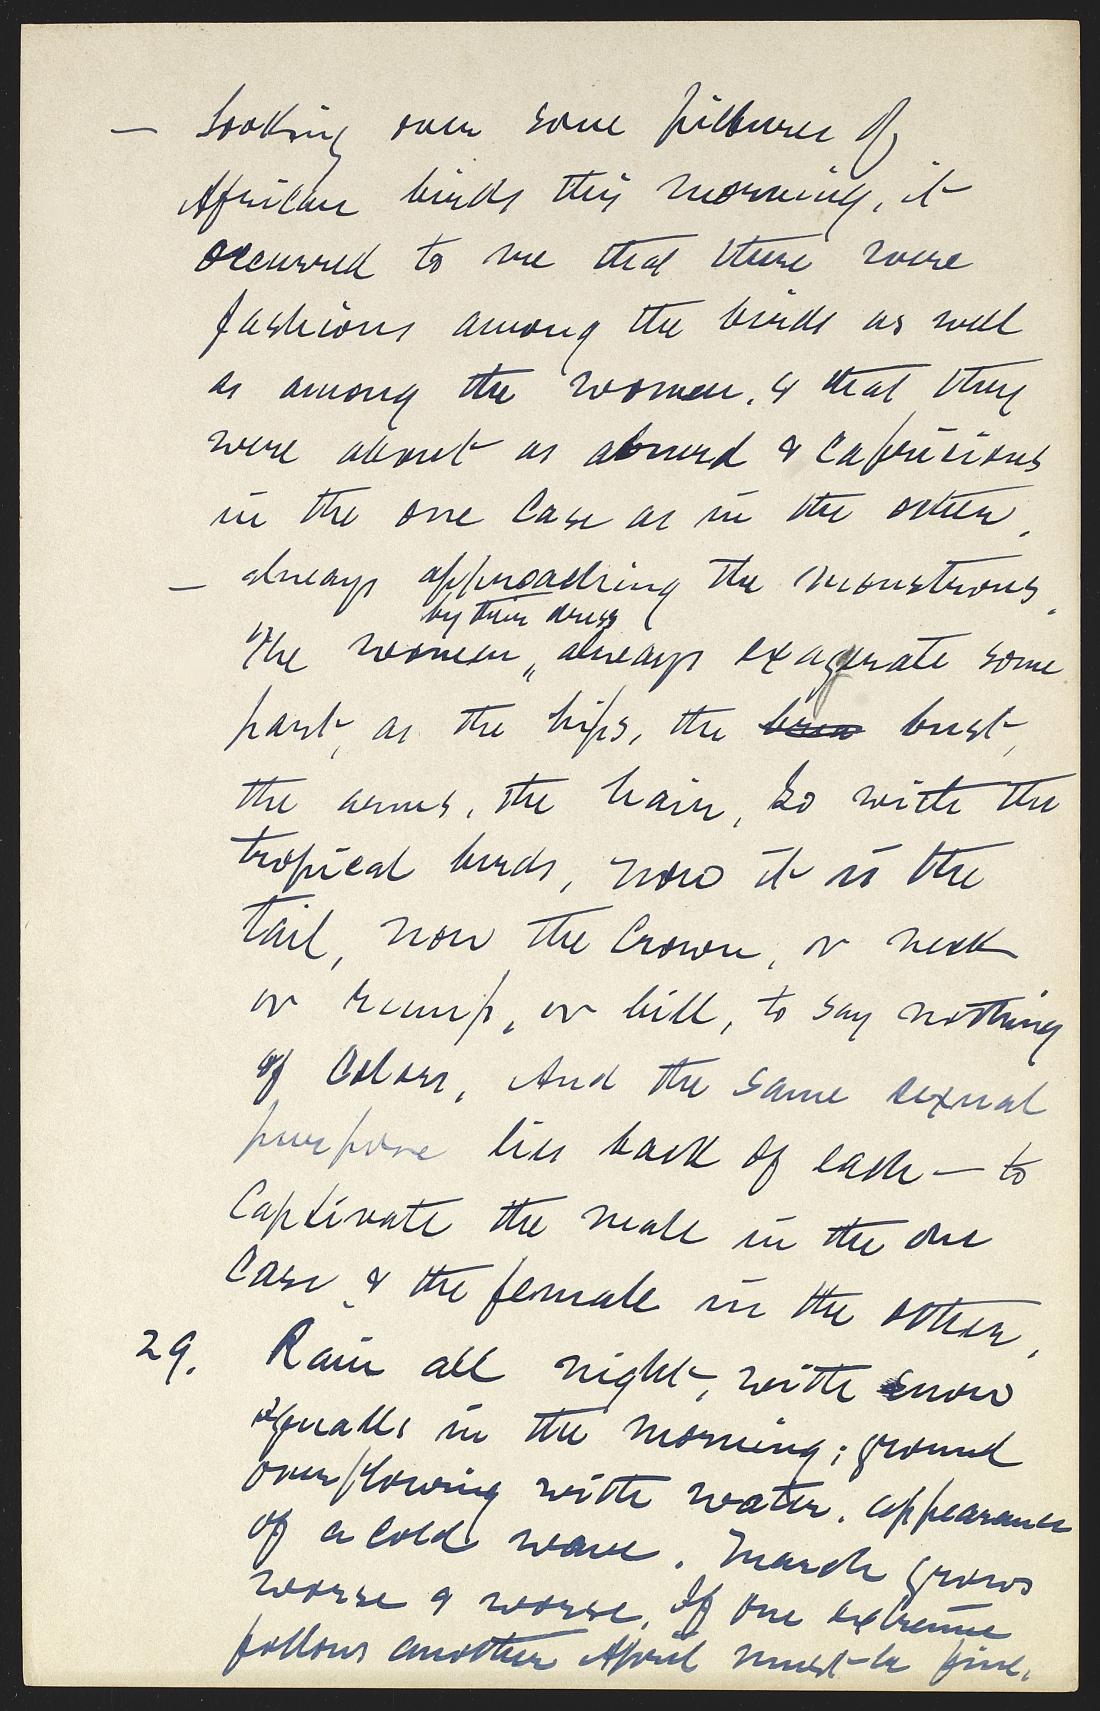 — Looking over some pictures of
African birds this morning, it
occurred to me that there were
fashions among the birds as well
as among the women, & that they
were about as absurd & capricious
in the one case as in the other,
— always approaching the monstrous.
by their dress
The women, always exagerate some
part, as the hips, the bust,
the arms, the hair, So with the
tropical birds, now it is the
tail, now the crown, or neck
or rump, or bill, to say nothing
of colors, And the same sexual
purpose lies back of each — to
captivate the male in the one
case, & the female in the other.
29. Rain all night, with snow
squalls in the morning; ground
overflowing with water, appearance
of a cold wave. March grows
worse & worse. If one extreme
follows another April must be fine.